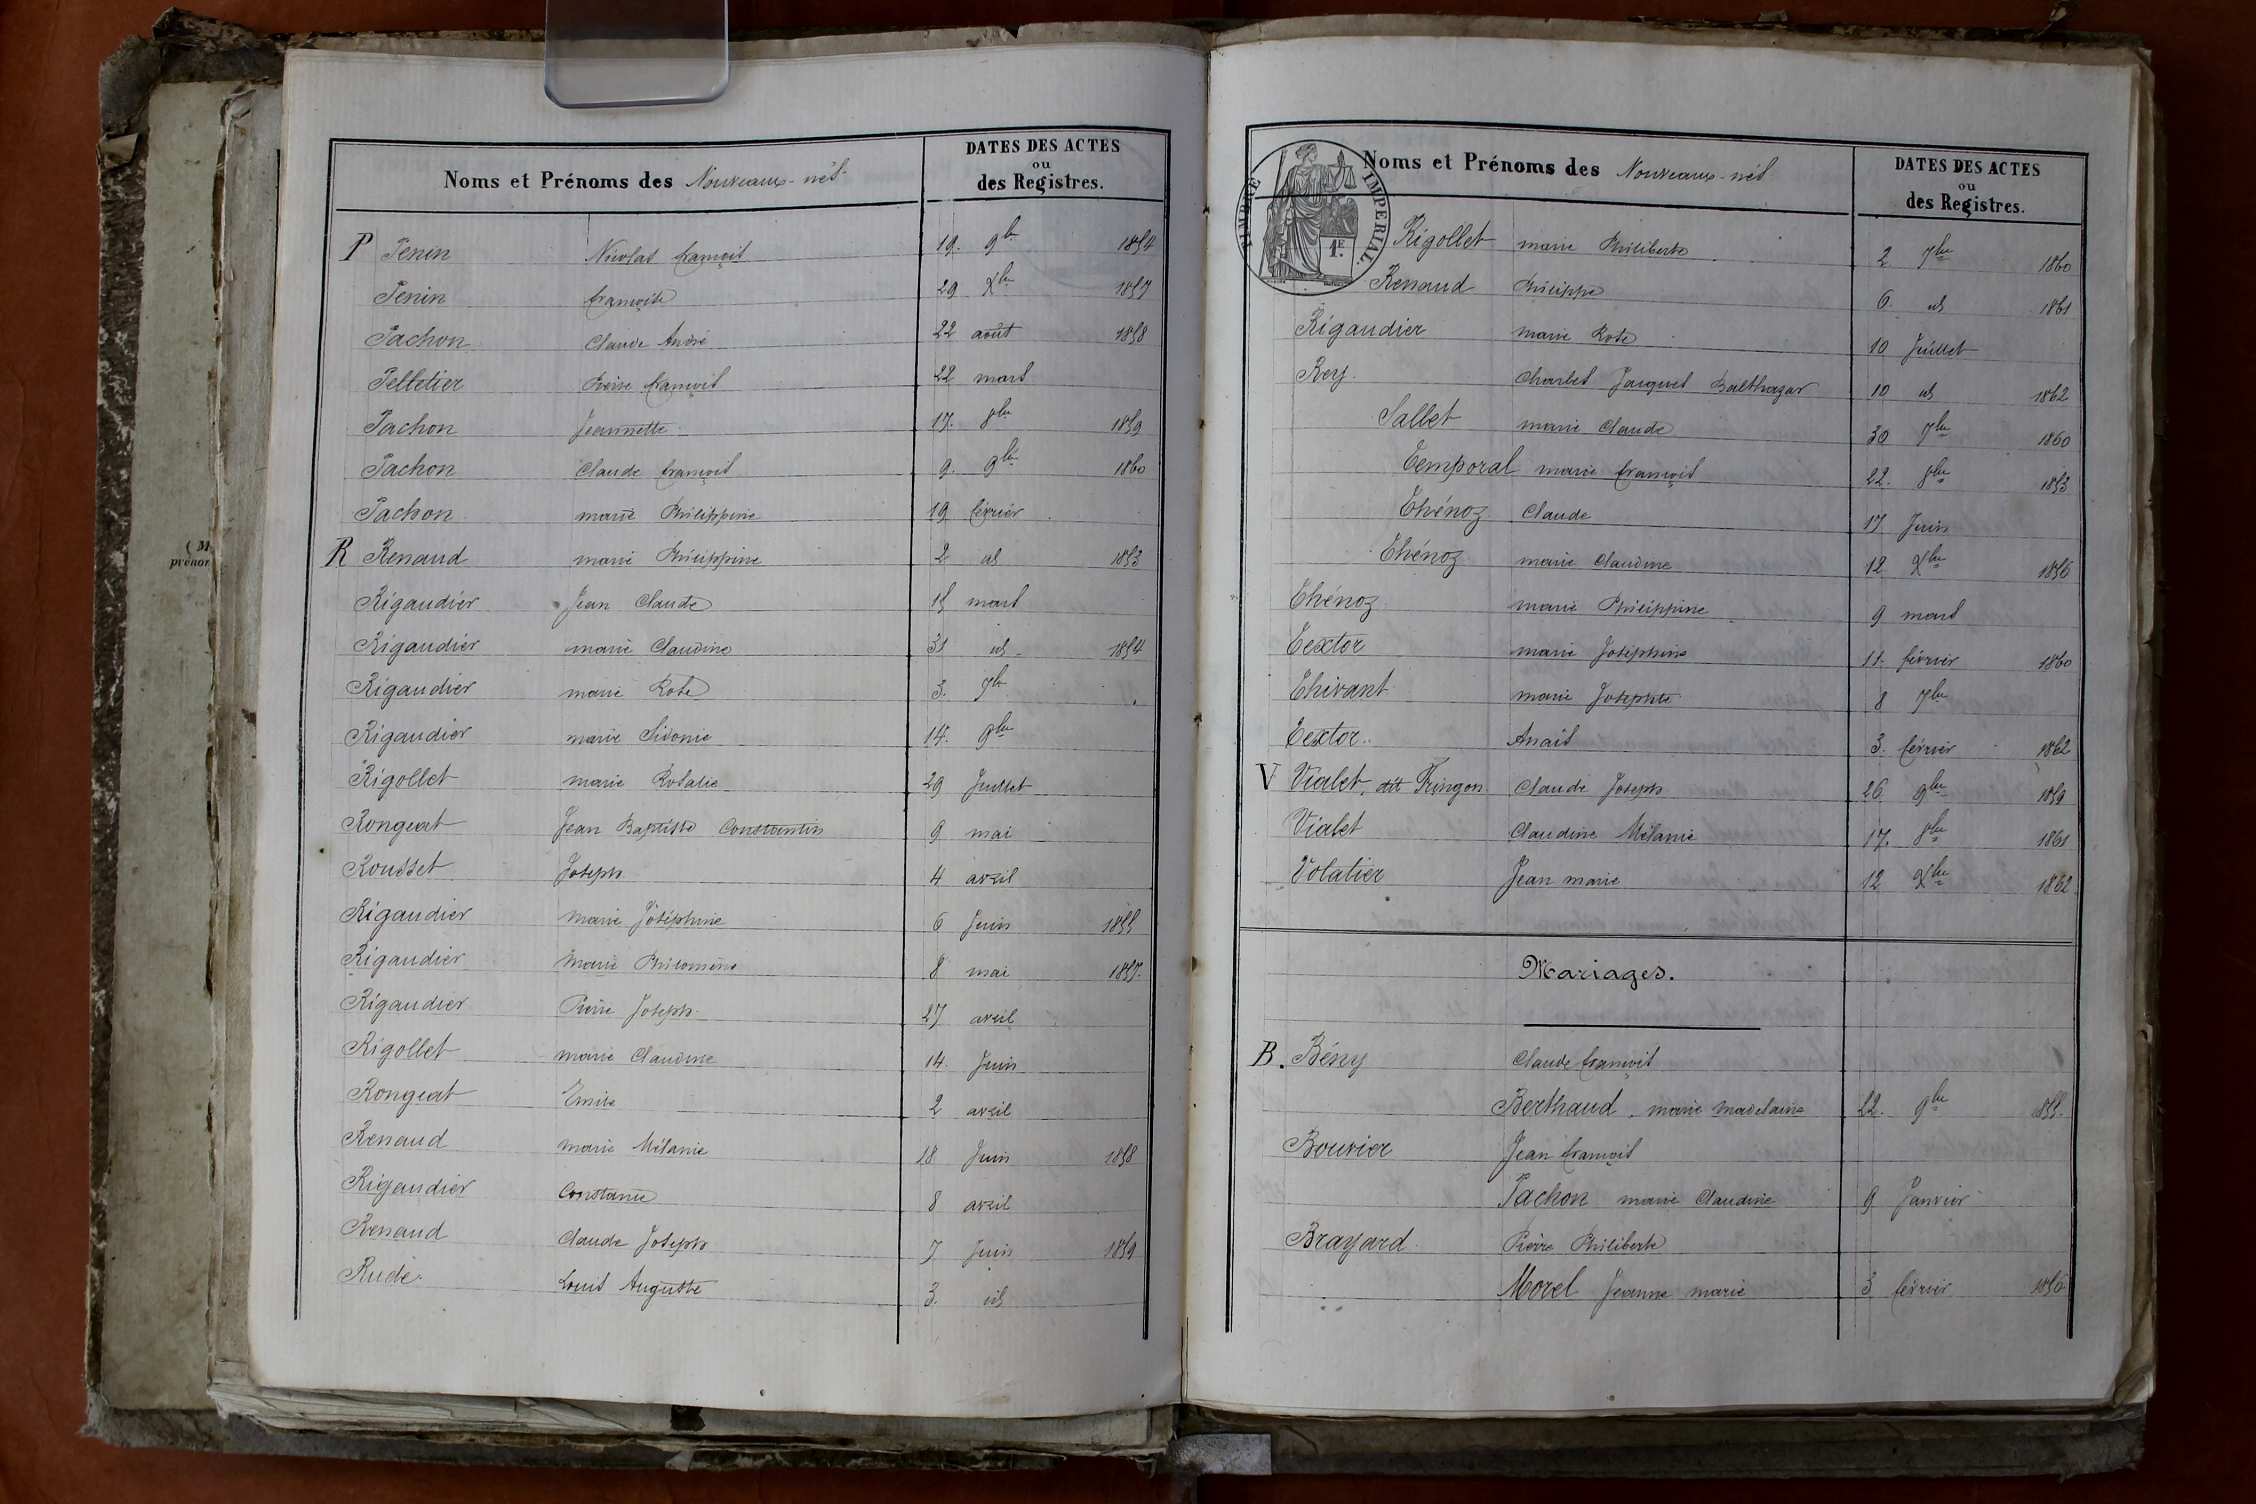 ( M
prénor
Noms et Prénoms des Nouveaux-nés
DATES DES ACTES
ou
des Registres.
P Penin Nicolas françois 19. 9br 1854
Penin françoise 29 Xbre 1857
Pachon Claude André 22 août 1858
Pelletier Pierre françois 22 mars
Pachon Jeannette 17. 8bre 1859
Pachon Claude françois 9. 9bre 1860
Pachon marie Philippine 19 février
R Renaud marie Philippine 2 id 1853
Rigaudier Jean Claude 15 mars
Rigaudier marie Claudine 31 id 1854
Rigaudier marie Rose 3. 7br
Rigaudier marie Sidonie 14. 9bre
Rigollet marie Rosalie 29 Juillet
Rongeat Jean Baptiste Constantin 9 mai
Rousset Joseph 4 avril
Rigaudier marie Joséphine 6 Juin 1855
Rigaudier Marie Philomène 8 mai 1857.
Rigaudier Pierre Joseph 27 avril
Rigollet marie Claudine 14. Juin
Rongeat Emile 2 avril
Renaud marie Mélanie 18 Juin 1858
Rigaudier Constance 8 avril
Renaud Claude Joseph 7 Juin 1859
Rude. Louis Auguste 3. id
TIMBRE IMPERIAL.
1E.
Noms et Prénoms des Nouveaux-nés
DATES DES ACTES
ou
des Registres.
Rigollet marie Philiberte 2 7bre 1860
Renaud Philippe 6. id 1861
Rigaudier marie Rose 10 Juillet
Rey. Charles Jacques Balthazar 10 id 1862
Sallet marie Claude 30 7bre 1860
Temporal marie françois 22. 8bre 1853
Thénoz Claude 17 Juin
Thénoz marie Claudine 12 Xbre 1856
Thénoz marie Philippine 9 mars
Textor marie Joséphine 11. février 1860
Thivant marie Josephte 8 7bre
Textor. Anaïs 3. février 1862
V Vialet, dit Fringon Claude Joseph 26 9bre 1859
Vialet Claudine Mélanie 17. 8bre 1861
Volatier Jean marie 12 Xbre 1862
Mariages.
B. Bény Claude françois
Berthaud, marie madelaine 22. 9bre 1855.
Bouvier Jean françois
Pachon marie Claudine 9 Janvier
Brayard. Pierre Philiberte
Morel Jeanne marie 3 février 1856